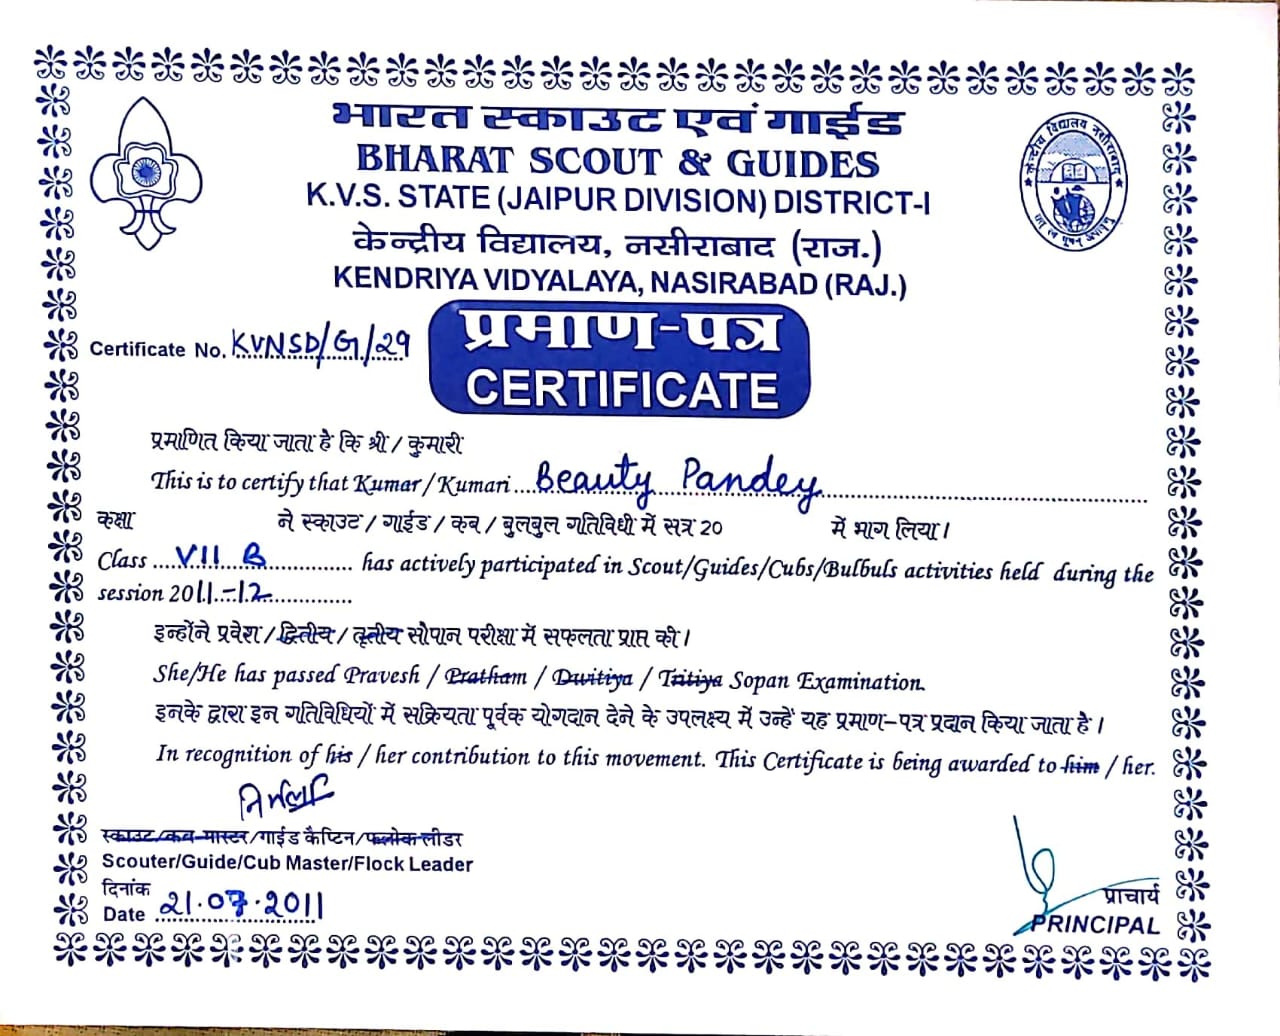 भारत स्काउट एवं गाईड
BHARAT SCOUT & GUIDES
K.V.S. STATE (JAIPUR DIVISION) DISTRICT-I
केन्द्रीय विद्यालय, नसीराबाद (राज.)
KENDRIYA VIDYALAYA, NASIRABAD (RAJ.)
केन्द्रीय विद्यालय नसीराबाद
Certificate No. KVNSD/G/29
प्रमाण-पत्र
CERTIFICATE
प्रमाणित किया जाता है कि श्री / कुमारी
This is to certify that Kumar / Kumari Beauty Pandey
कक्षा ने स्काउट / गाईड / कब / बुलबुल गतिविधी में सत्र 20 में भाग लिया।
Class VII B has actively participated in Scout/Guides/Cubs/Bulbuls activities held during the
session 2011-12
इन्होंने प्रवेश / द्वितीय / तृतीय सोपान परीक्षा में सफलता प्राप्त की।
She/He has passed Pravesh / Pratham / Dwitiya / Tritiya Sopan Examination.
इनके द्वारा इन गतिविधियों में सक्रियता पूर्वक योगदान देने के उपलक्ष्य में उन्हें यह प्रमाण-पत्र प्रदान किया जाता है।
In recognition of his / her contribution to this movement. This Certificate is being awarded to him / her.
स्काउट/कब मास्टर/गाईड कैप्टिन/फ्लोक लीडर
Scouter/Guide/Cub Master/Flock Leader
दिनांक
Date 21.07.2011
प्राचार्य
PRINCIPAL